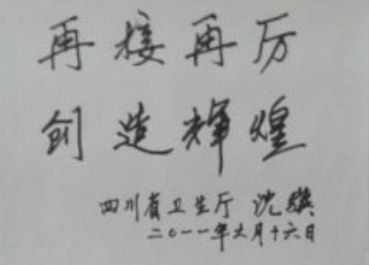 再接再厉
创造辉煌
四川省卫生厅 沈骥
二〇一一年六月十六日